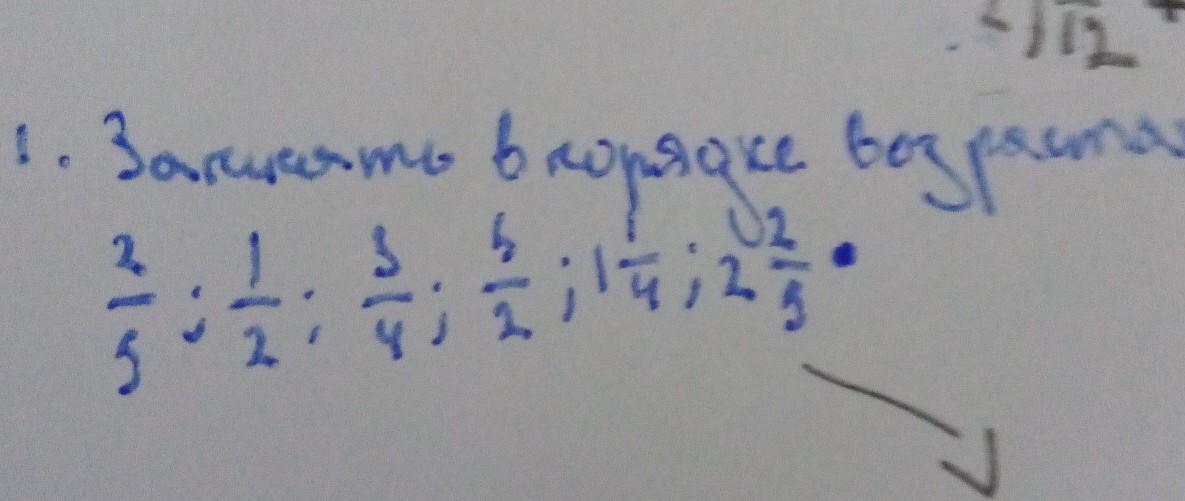 - √12 +
1. Записать в порядке возраста
2/5 ; 1/2 ; 3/4 ; 5/2 ; 1 1/4 ; 2 2/5 .